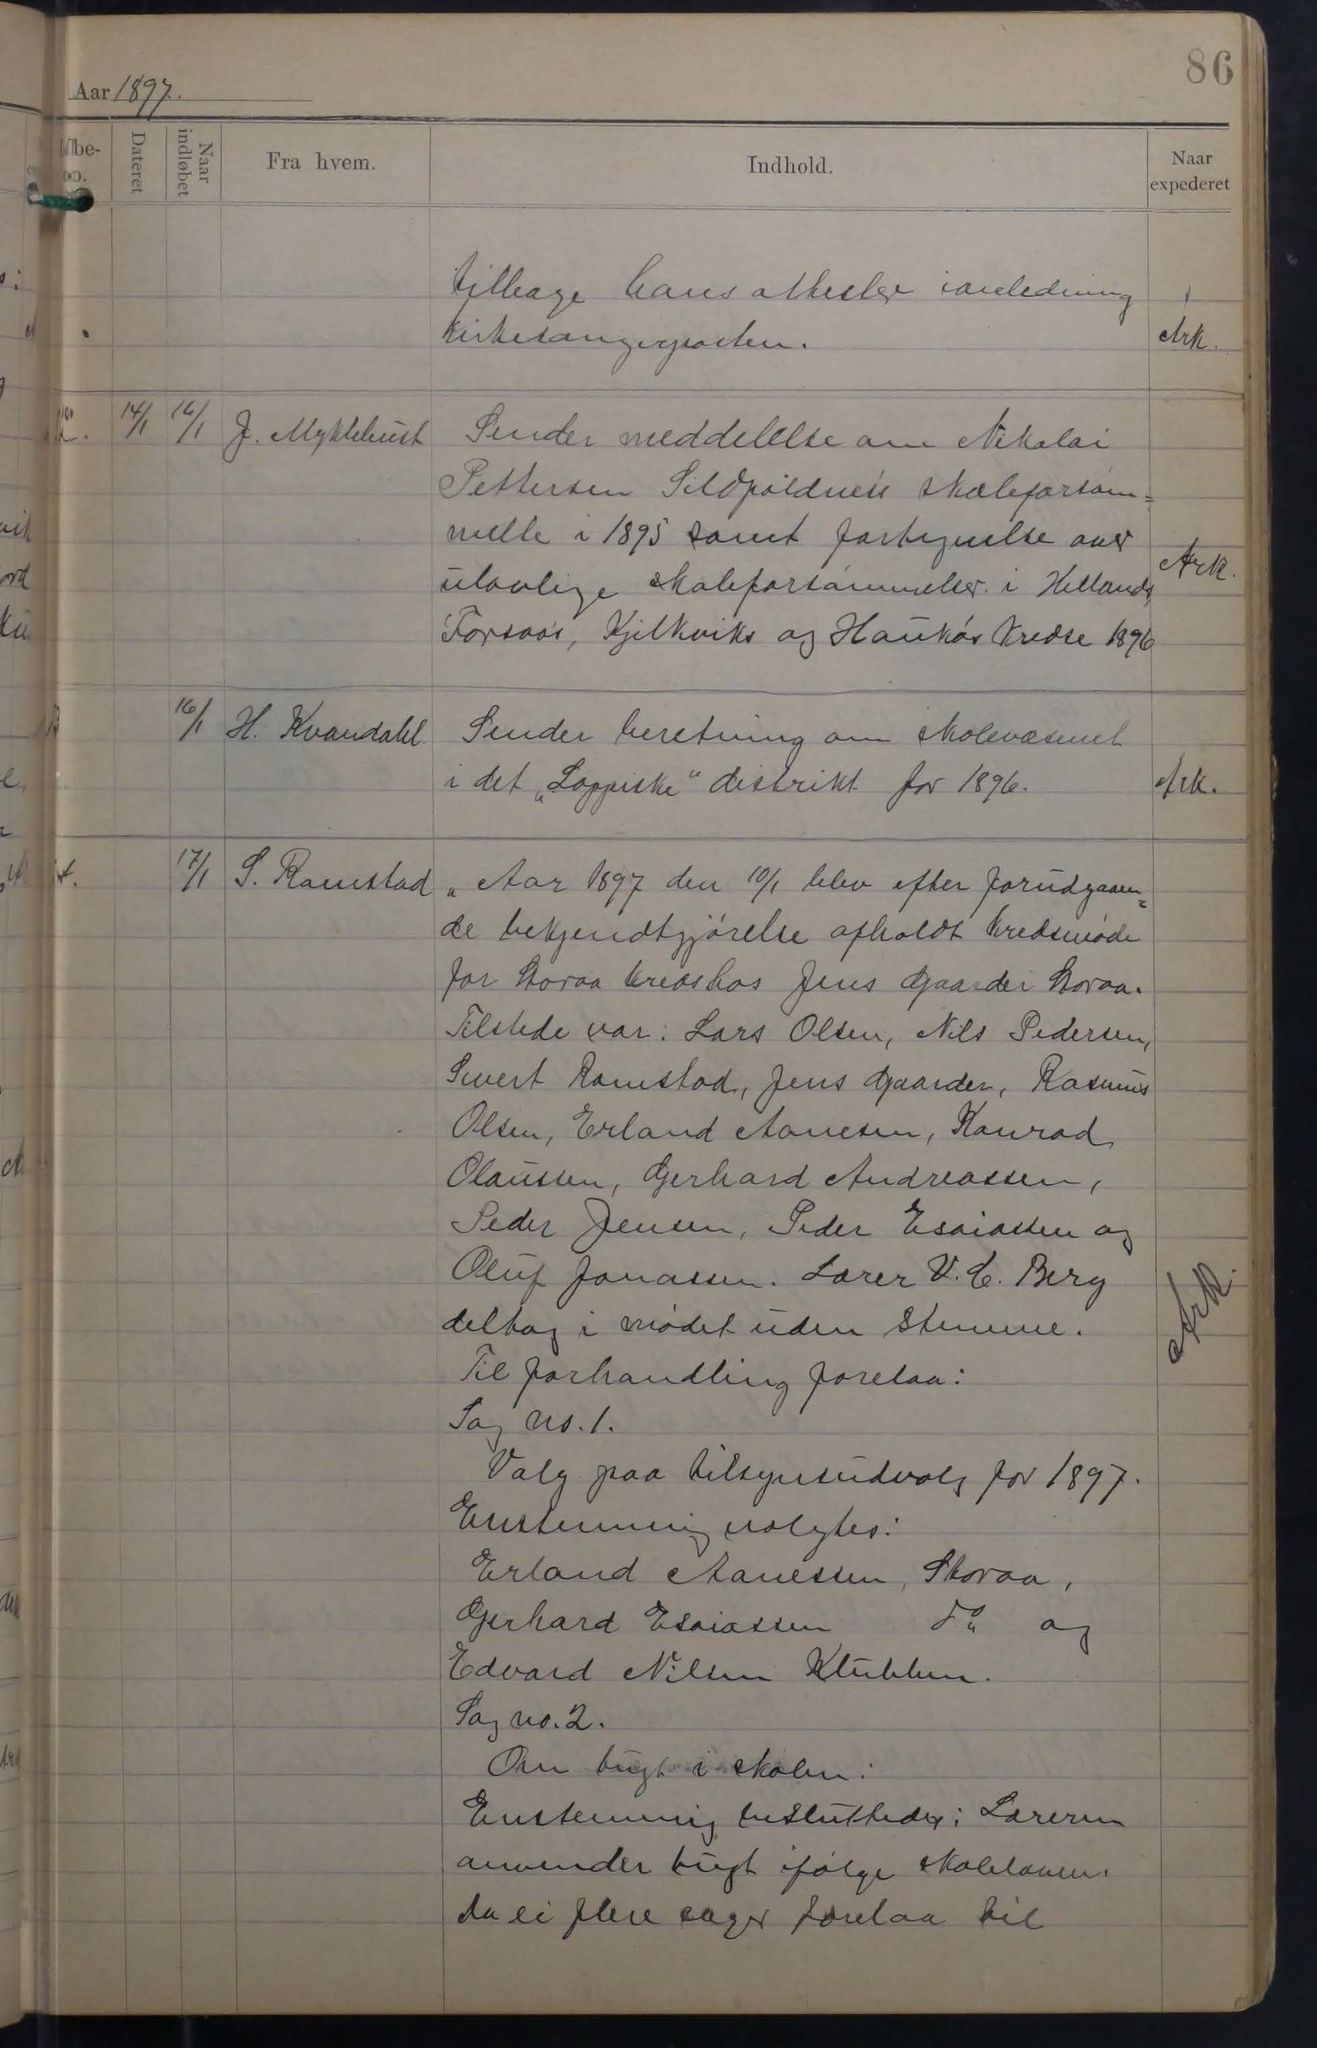 86
Aar 1897.
Dateret
Naar indløbet
Fra hvem.
Indhold.
Naar expederet
tilbage hans attester i anledning
kirkesangerposten.
Ark.
14/1 16/1 J. Myklebust Sender meddelelse om Nikolai
Pettersen Sildpoldnes's skoleforsøm=
melse i 1895 samt fortegnelse over
ulovlige skoleforsømmelser i Hellands,
Ark.
Forsaas, Kjelkviks og Haukøs kredse 1896
16/1 H. Kvandahl Sender beretning om skolevæsenet
i det "Lappiske" distrikt for 1896.
Ark.
17/1 S. Ramstad "Aar 1897 den 10/1 blev efter forudgaaen=
de bekjendtgjørelse afholdt kredsmøde
for Storaa kreds hos Jens Gaarder Storaa.
Tilstede var: Lars Olsen, Nils Pedersen,
Sivert Ramstad, Jens Gaarder, Rasmus
Olsen, Erland Aanesen, Konrad
Olaussen, Gerhard Andreassen,
Peder Jensen, Peder Esaiassen og
Oluf Jonassen. Lærer V. C. Berg
deltog i mødet uden stemme.
Ark.
Til forhandling forelaa:
Sag no. 1.
Valg paa tilsynsudvalg for 1897.
Enstemmig valgtes:
Erland Aanessen, Storaa,
Gerhard Esaiassen do og
Edvard Nilsen Klubben.
Sag no. 2.
Om tugt i skolen:
Enstemmig besluttedes: Læreren
anvender tugt ifølge skoleloven.
Da ei flere sager forelaa til